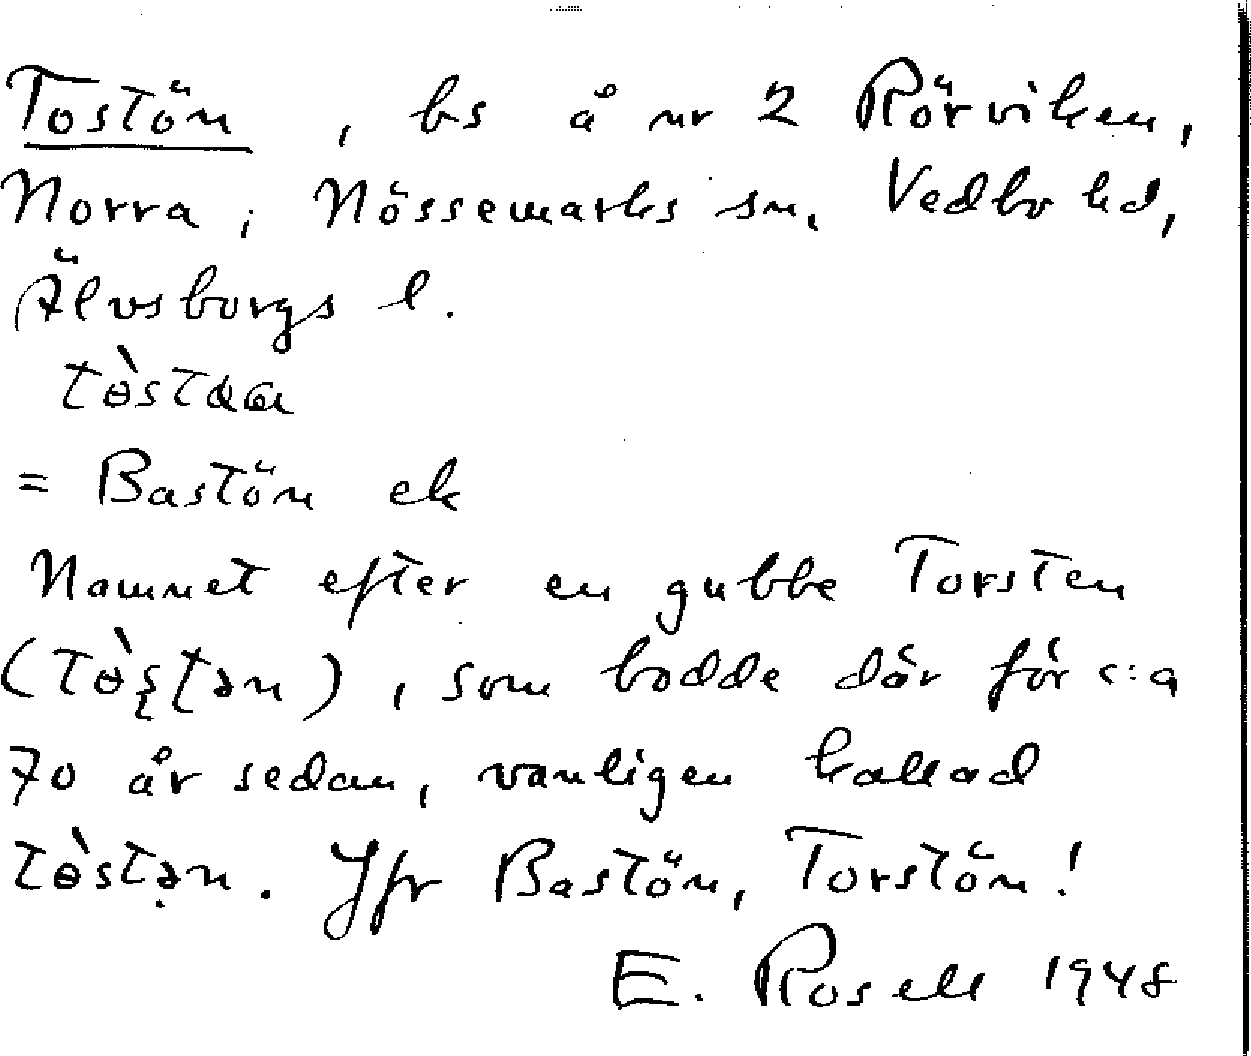 Tostön, bs å nr 2 Rörviken,
Norra, Nössemarks sn, Vedbo hd,
Älvsborgs l.
= Bastön ek
Namnet efter en gubbe Torsten
(tɵ̀ʂʈən), som bodde där för c:a
70 år sedan, vanligen kallad
tɵ̀stə̣n. Jfr Bastön, Torstön!
E. Rosell 1948